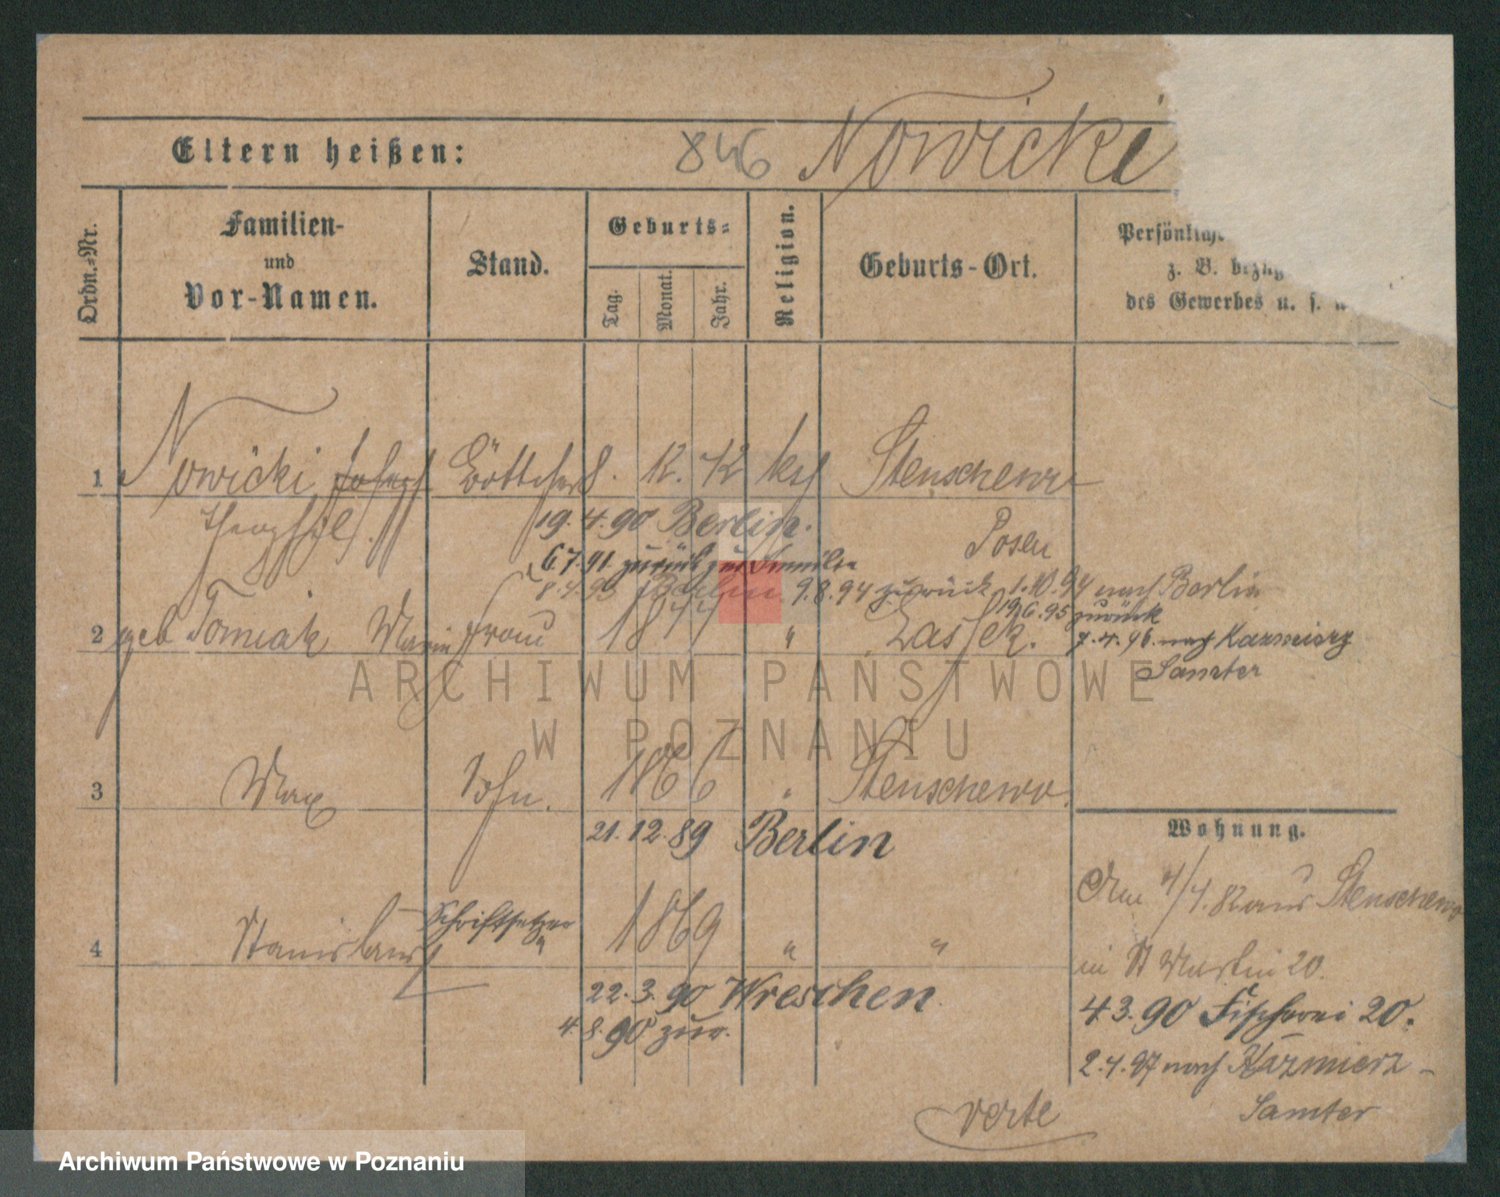 Eltern heißen: 846 Nowicki
Ordn.-Nr.
Familien-
und
Vor-Namen.
Stand.
Geburts-
Tag.
Monat.
Jahr.
Religion.
Geburts-Ort.
Persönliche
z. B. bezüg
des Gewerbes u. s.
1 Nowicki Joseph Böttcher 8. 12. 42 ksh Stenschewo
Theophil
19.4.90 Berlin.
Posen
6.7.91 zurück zur Familie
8.4.93 Berlin 9.8.94 zurück 1.10.94 nach Berlin
19.6.95 zurück
2 geb Tomiak Marie Frau 1844 " 7.4.96 nach Kazmierz
Samter
3 Max Sohn. 1866 " Stenschewo.
21.12.89 Berlin
Wohnung.
Am 4/4.82 aus Stenschewo
4 Stanislaus Schriftsetzer 1869 " "
in St Martin 20.
22.3.90 Wreschen
4.3.90 Fischerei 20.
4.8.90 zur.
2.4.97 nach Kazmierz-
Samter
verte
ARCHIWUM PAŃSTWOWE
W POZNANIU
Archiwum Państwowe w Poznaniu